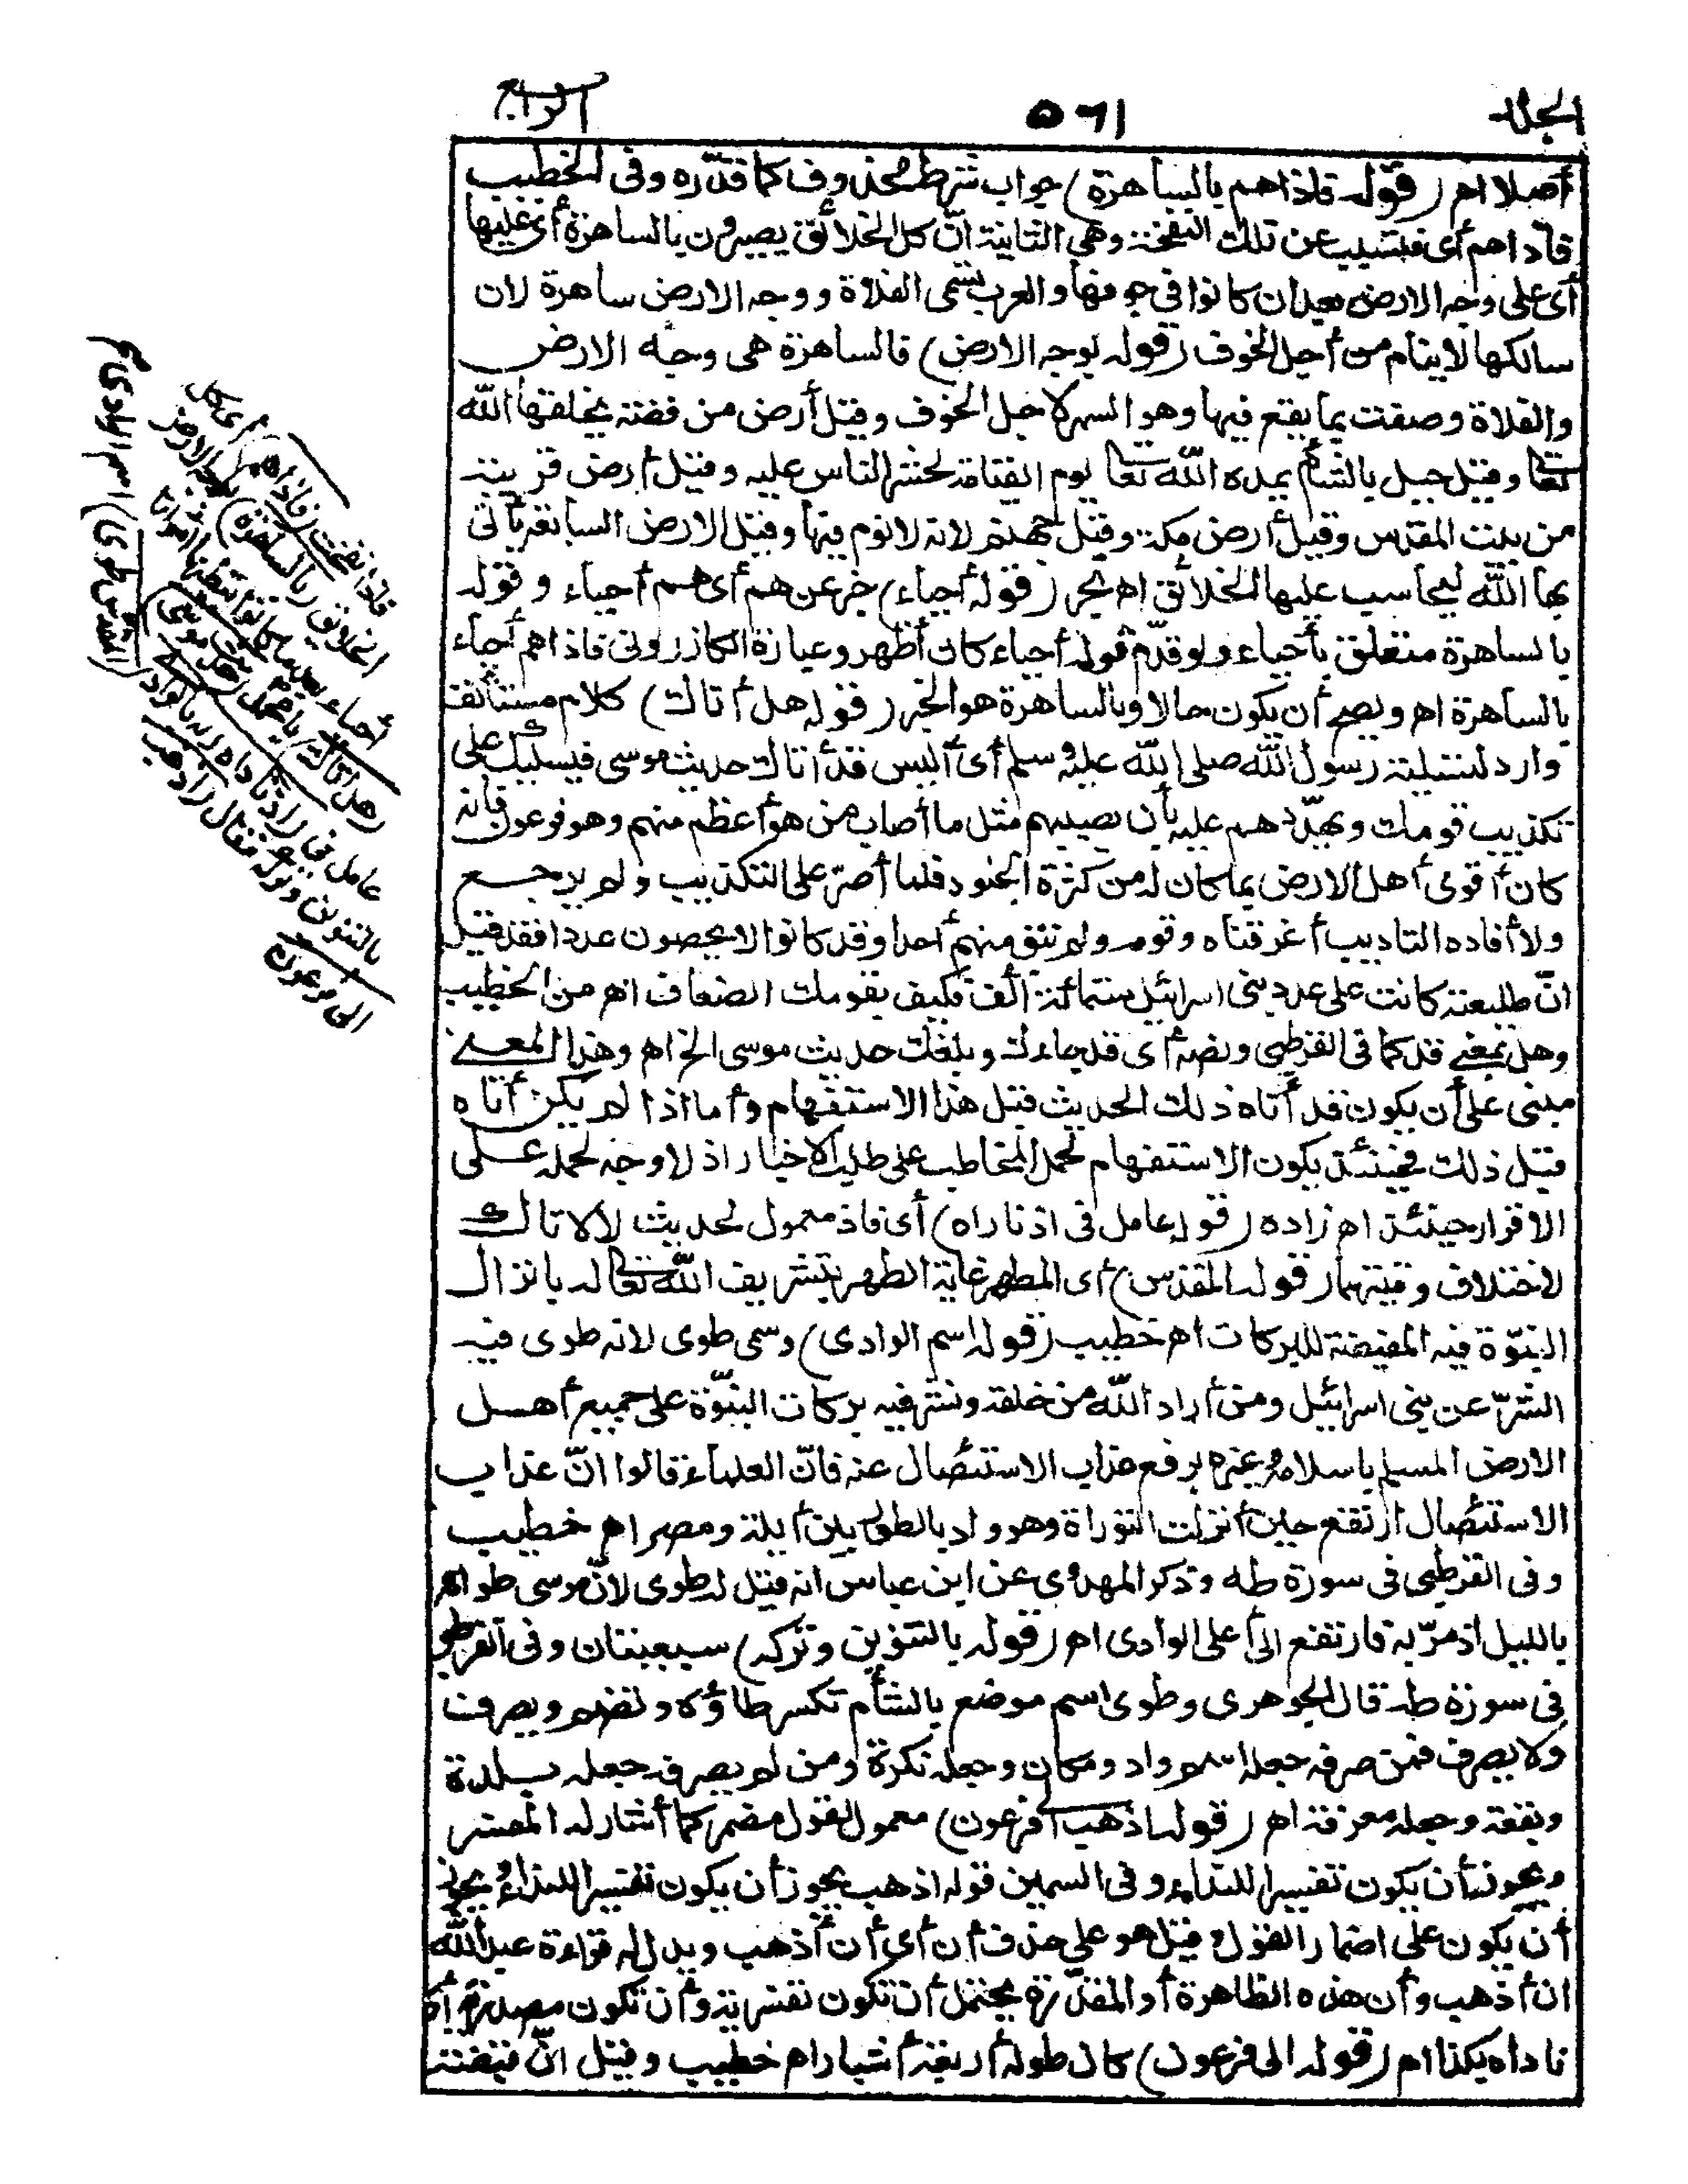 الجلد ٥٦١ الرابع
أصلا اه (قوله فاذا هم بالساهرة) جواب شرط محذوف كما قدّره وفى الخطيب
فاذا هم أى فتسبب عن تلك النفخة وهى الثانية انّ كل الخلائق يصيرون بالساهرة أى عليها
أى على وجه الارض بعد ان كانوا فى جوفها والعرب تسمى الفلاة ووجه الارض ساهرة لان
سالكها لا ينام من أجل الخوف (قوله بوجه الارض) فالساهرة هى وجه الارض
والفلاة وصفت بما يقع فيها وهو السهر لاجل الخوف وقيل أرض من فضة يخلقها الله
تعالى وقيل جبل بالشأم يمده الله تعالى يوم القيامة لحشر الناس عليه وقيل أرض قريبة
من بيت المقدس وقيل أرض مكة وقيل جهنم لانه لا نوم فيها وقيل الارض السابعة يأتى
بها الله ليحاسب عليها الخلائق اه بحر (قوله أحياء) خبر عن هم أى هم أحياء وقوله
بالساهرة متعلق بأحياء ولو قدّم قوله أحياء كان أظهر وعبارة الكازرونى فاذا هم أحياء
بالساهرة اه ويصح أن يكون حالا وبالساهرة هو الخبر (قوله هل أتاك) كلام مستأنف
وارد لتسلية رسول الله صلى الله عليه وسلم أى أليس قد أتاك حديث موسى فيسليك على
تكذيب قومك ويهدّدهم عليه بأن يصيبهم مثل ما أصاب من هو أعظم منهم وهو فرعون فانه
كان أقوى أهل الارض بما كان له من كثرة الجنود فلما أصرّ على التكذيب ولم يرجع
ولا أفاده التاديب أغرقناه وقومه ولم نبق منهم أحدا وقد كانوا لا يحصون عددا فقد قيل
انّ طليعته كانت على عدد بنى اسرائيل ستمائة ألف فكيف بقومك الضعاف اه من الخطيب
وهل بمعنى قد كما فى القرطبى ونصه أى قد جاءك وبلغك حديث موسى الخ اه وهذا المعنى
مبنى على أن يكون قد أتاه ذلك الحديث قبل هذا الاستفهام وأما اذا لم يكن أتاه
قبل ذلك فحينئذ يكون الاستفهام لحمل المخاطب على طلب الاخبار اذ لا وجه لحمله على
الاقرار حينئذ اه زاده (قوله عامل فى اذ ناداه) أى فاذ معمول لحديث لا لاتاك
لاختلاف وقتيهما (قوله المقدس) أى المطهر غاية الطهر بتشريف الله تعالى له بانزال
النبوّة فيه المفيضة للبركات اه خطيب (قوله اسم الوادى) وسمى طوى لانه طوى فيه
الشرّ عن بنى اسرائيل ومن أراد الله من خلقه ونشر فيه بركات النبوّة على جميع أهل
الارض المسلم باسلامه وغيره برفع عذاب الاستئصال عنه فانّ العلماء قالوا انّ عذاب
الاستئصال ارتفع حين أنزلت التوراة وهو واد بالطور بين أيلة ومصر اه خطيب
وفى القرطبى فى سورة طه وذكر المهدوى عن ابن عباس انه قيل له طوى لانّ موسى طواه
بالليل اذ مرّ به فارتفع الى أعلى الوادى اه (قوله بالتنوين وتركه) سبعيتان وفى القرطبى
فى سورة طه قال الجوهرى وطوى اسم موضع بالشأم تكسر طاؤه وتضم ويصرف
ولا يصرف فمن صرفه جعله اسم واد ومكان وجعله نكرة ومن لم يصرفه جعله بلدة
وبقعة وجعله معرفة اه (قوله اذهب الى فرعون) معمول لقول مضمر كما أشار له المفسر
ويجوز أن يكون تفسيرا للنداء وفى السمين قوله اذهب يجوز أن يكون تفسيرا للنداء ويجوز
أن يكون على اضمار القول وقيل هو على حذف أن أى أن أذهب ويدل له قراءة عبد الله
ان أذهب وأن هذه الظاهرة أو المقدّرة يحتمل أن تكون تفسيرية وأن تكون مصدرية أى
ناداه بكذا اه (قوله الى فرعون) كان طوله أربعة أشبار اه خطيب وقيل انّ قبضته
فاذا نفخت (فاذا هم) أى كل
الخلائق (بالساهرة) بوجه الارض
أحياء بعد ما كانوا ببطنها أمواتا
(هل أتاك) يا محمد (حديث موسى)
عامل فى (اذ ناداه ربه بالواد
المقدّس طوى) اسم الوادى
بالتنوين وتركه فقال (اذهب
الى فرعون